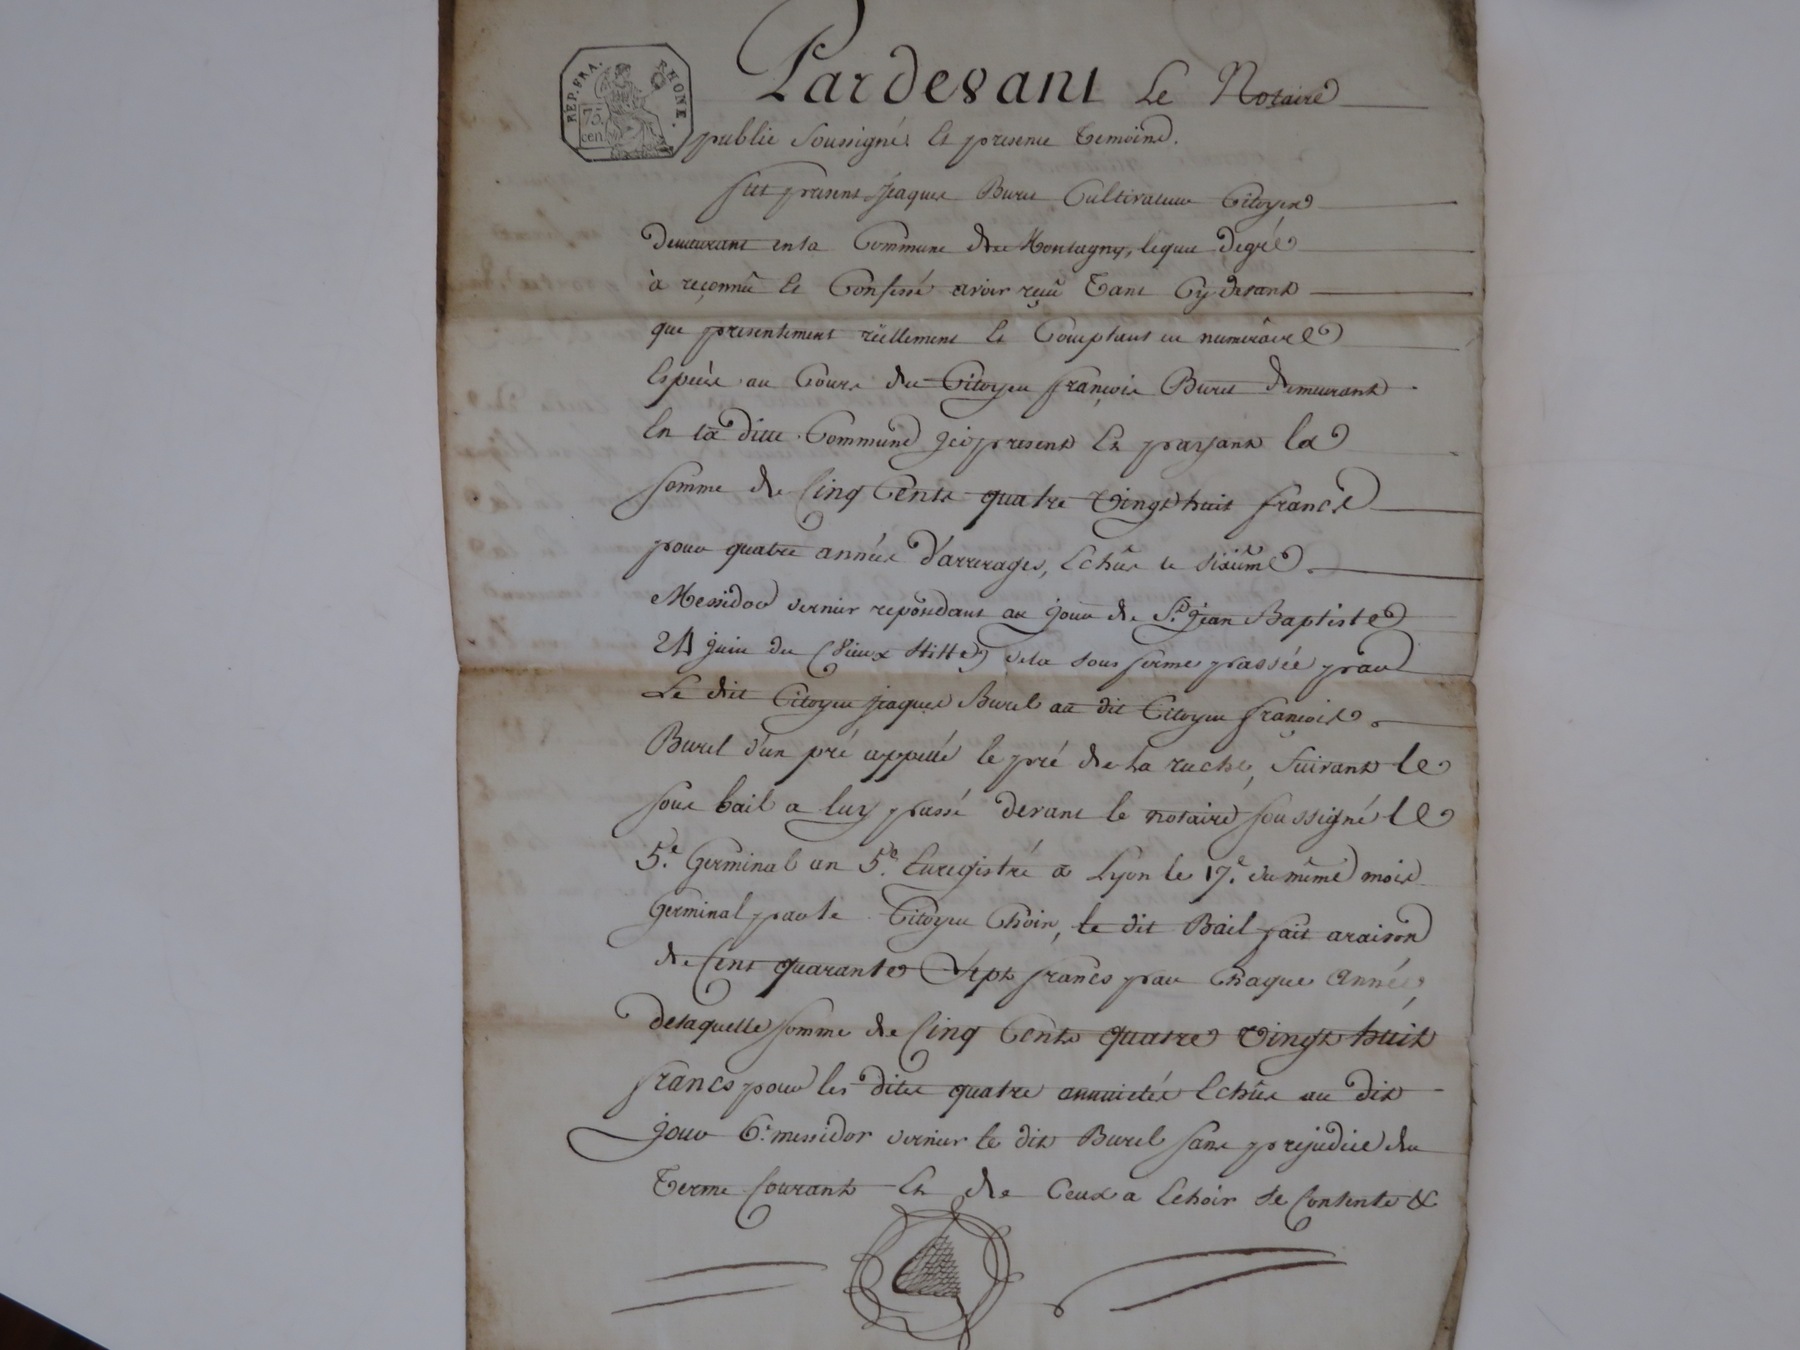 REP. FRA.
RHONE.
75.
cen.
Pardevant Le Notaire
public Soussigné Et presence Temoins.
fut present Jaques Burel Cultivateur Citoyen
demeurant en la Commune de Montagny, lequel degré
à reconnû Et Confessé avoir reçû Tant Cy devant
que presentement réellement Et Comptant en numéraire
Espèce au Cours du Citoyen françois Burel demeurant
En la ditte Commune ici present Et payant la
somme de Cinq Cents quatre vingt huit francs
pour quatre années d'arrerages, Echûs le sixième
Messidor dernier repondant au jour de St. jean Baptiste
24 juin du (vieux stille) de la sous ferme passée par
Le dit Citoyen jaques Burel au dit Citoyen françois
Burel d'un pré appellé le pré de La ruche, Suivant le
sous bail a luy passé devant le notaire soussigné le
5.e Germinal an 5.e Enregistré a Lyon le 17.e du même mois
Germinal par le Citoyen Choin, le dit Bail fait araison
de Cent quarante Sept francs par Chaque année,
de laquelle somme de Cinq Cents quatre vingt huit
francs pour les dites quatre annuietés Echûs au dit
jour 6.e messidor dernier le dit Burel sans prejudice du
Terme Courant Et de Ceux a Echoir se Contente &